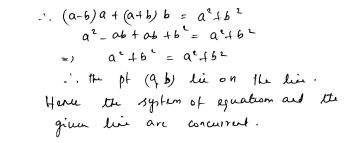 ∴ (a-b)a + (a+b)b = a²+b²
a² - ab + ab + b² = a²+b²
=) a²+b² = a²+b²
∴ the pt (a, b) lie on the line.
Hence the system of equation and the
given line are concurrent.